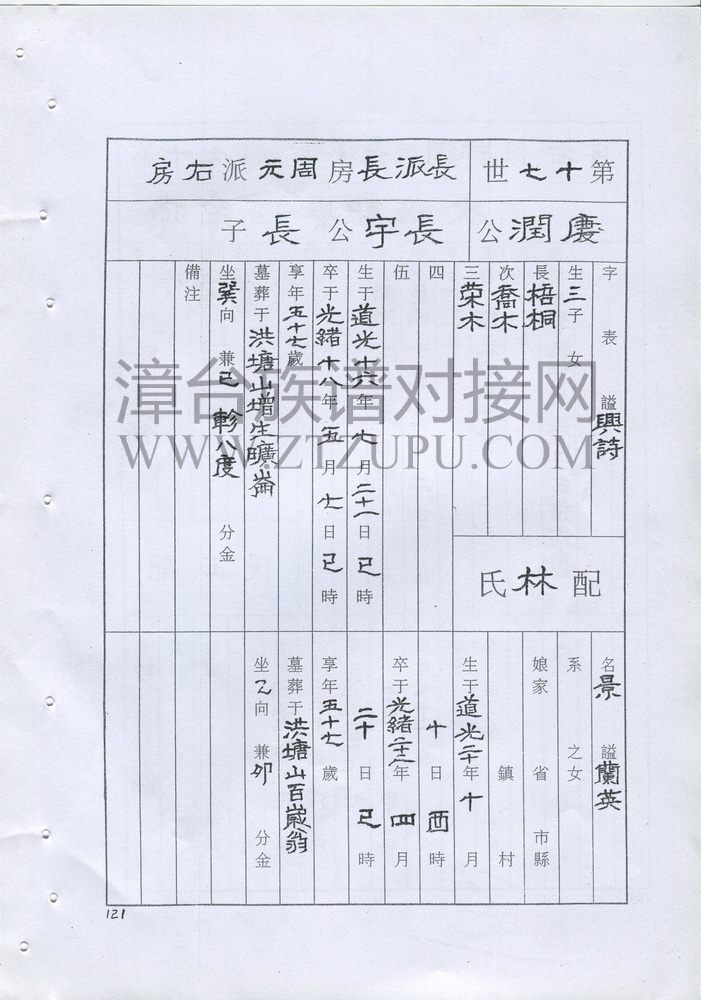 第十七世
長派長房周元派右房
慶潤公
長宇公長子
字表 謚興詩
生三子女
長梧桐
次喬木
三荣木
四
伍
生于道光十六年七月二十一日巳時
卒于光緒十八年五月十七日巳時
享年五十七歲
墓葬于洪塘山增生曠崙
坐巽向 兼巳軫八度 分金
備注
配林氏
名景 謚蘭英
系 之女
娘家 省 市縣
鎮 村
生于道光二十年十月
十日酉時
卒于光緒二十二年四月
二十日巳時
享年五十七歲
墓葬于洪塘山百歲翁
坐乙向 兼卯 分金
121
漳台族谱对接网
WWW.ZTZUPU.COM